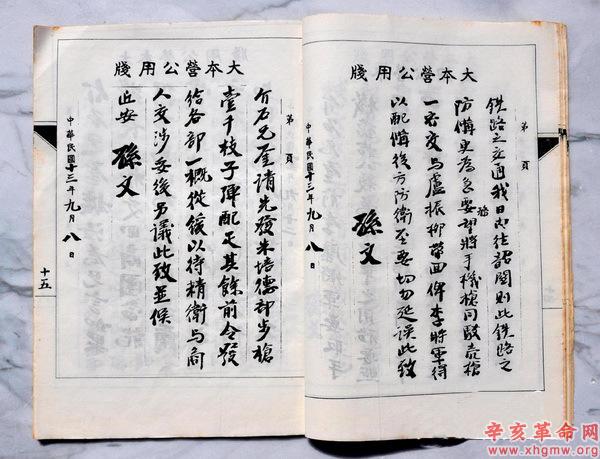 大本營公用牋
鐵路之交通我日內往韶關則此鐵路之
防備更為急要望將手機槍同駁壳槍
一齊交與盧振柳帶回俾李將軍得
以配備後方防衛至要切勿延誤此致
孫文
第 頁
中華民國十三年九月八日
大本營公用牋
介石兄鑒請先發朱培德部步槍
壹千枝子彈配足其餘前令發
給各部一概從緩以待精衛與商
人交涉妥後另議此致並候
近安 孫文
第 頁
中華民國十三年九月八日
十五
辛亥革命网
www.xhgmw.org